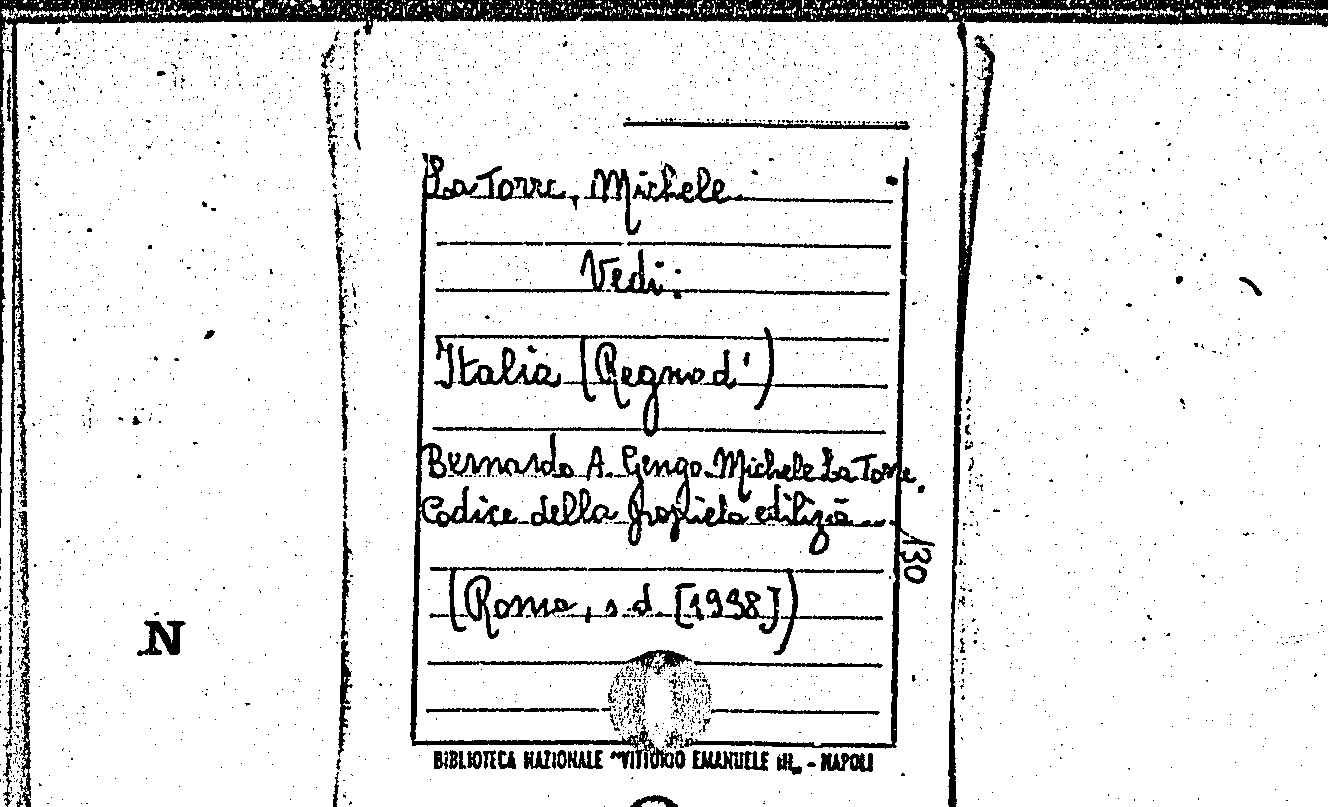 La Torre, Michele.
Vedi:
Italia (Regno d')
Bernardo A. Gengo. Michele La Torre.
Codice della proprietà edilizia...
130
(Roma, s.d. [1938])
N
BIBLIOTECA NAZIONALE "VITTORIO EMANUELE III„ - NAPOLI